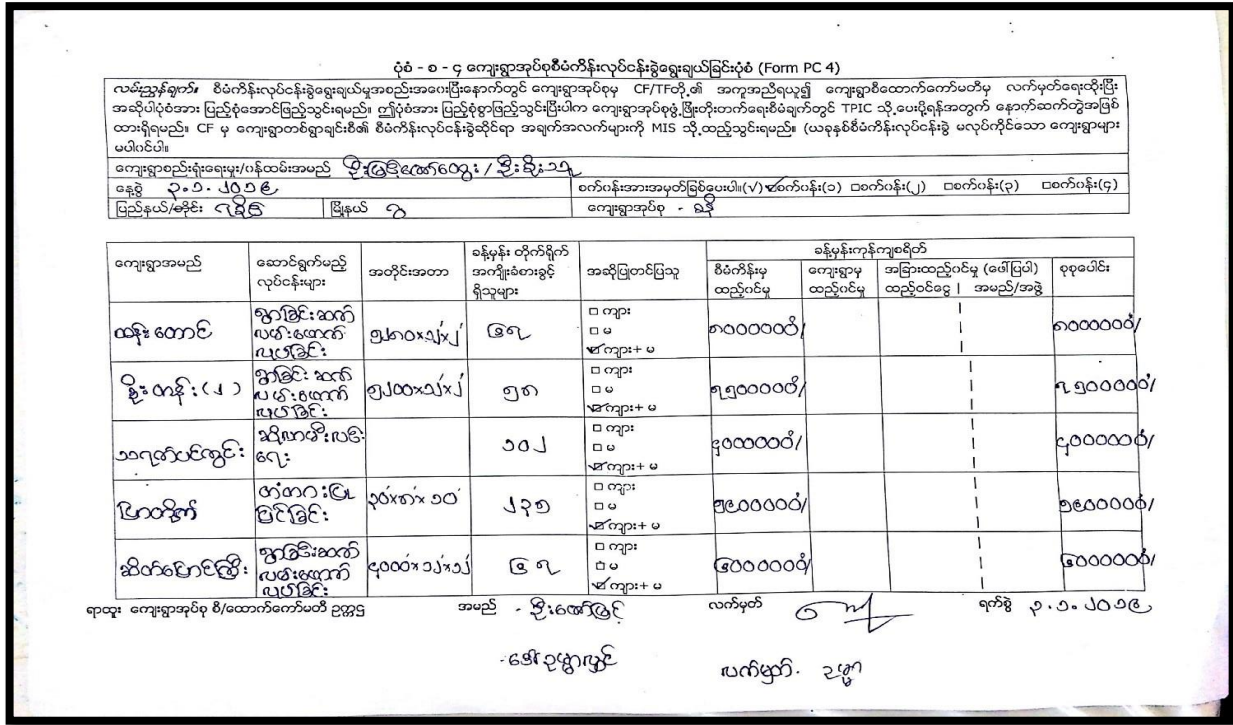 ပုံစံ - စ - ၄ ကျေးရွာအုပ်စုစီမံကိန်းလုပ်ငန်းခွဲရွေးချယ်ခြင်းပုံစံ (Form PC 4)
လမ်းညွှန်ချက်။ စီမံကိန်းလုပ်ငန်းခွဲရွေးချယ်မှုအစည်းအဝေးပြီးနောက်တွင် ကျေးရွာအုပ်စုမှ CF/TFတို့၏ အကူအညီရယူ၍ ကျေးရွာစီထောက်ကော်မတီမှ လက်မှတ်ရေးထိုးပြီး
အဆိုပါပုံစံအား ပြည့်စုံအောင်ဖြည့်သွင်းရမည်။ ဤပုံစံအား ပြည့်စုံစွာဖြည့်သွင်းပြီးပါက ကျေးရွာအုပ်စုဖွံ့ဖြိုးတိုးတက်ရေးစီမံချက်တွင် TPIC သို့ပေးပို့ရန်အတွက် နောက်ဆက်တွဲအဖြစ်
ထားရှိရမည်။ CF မှ ကျေးရွာတစ်ရွာချင်းစီ၏ စီမံကိန်းလုပ်ငန်းခွဲဆိုင်ရာ အချက်အလက်များကို MIS သို့ထည့်သွင်းရမည်။ (ယခုနှစ်စီမံကိန်းလုပ်ငန်းခွဲ မလုပ်ကိုင်သော ကျေးရွာများ
မပါဝင်ပါ။
ကျေးရွာစည်းရုံးရေးမှူး/ဝန်ထမ်းအမည်
နေ့စွဲ ၃.၁.၂၀၁၉ စက်ဝန်းအားအမှတ်ခြစ်ပေးပါ။(√) ☑စက်ဝန်း(၁) □စက်ဝန်း(၂) □စက်ဝန်း(၃) □စက်ဝန်း(၄)
ပြည်နယ်/တိုင်း ရခိုင် မြို့နယ် ကျေးရွာအုပ်စု -
ကျေးရွာအမည် ဆောင်ရွက်မည့် လုပ်ငန်းများ အတိုင်းအတာ ခန့်မှန်း တိုက်ရိုက် အကျိုးခံစားခွင့် ရှိသူများ အဆိုပြုတင်ပြသူ ခန့်မှန်းကုန်ကျစရိတ်
စီမံကိန်းမှ ထည့်ဝင်မှု ကျေးရွာမှ ထည့်ဝင်မှု အခြားထည့်ဝင်မှု (ဖေါ်ပြပါ) ထည့်ဝင်ငွေ | အမည်/အဖွဲ့ စုစုပေါင်း
ထန်းတောင် ရွာခြင်းဆက် လမ်းဖောက် လုပ်ခြင်း ၅၂၈၀×၁၂'×၂' ၆၇ □ ကျား □ မ ☑ ကျား+ မ ၈၀၀၀၀၀၀/ ၈၀၀၀၀၀၀/
ရွာခြင်းဆက် လမ်းဖောက် လုပ်ခြင်း ၅၂၀၀×၁၂'×၂' ၅၈ □ ကျား □ မ ☑ ကျား+ မ ၇၅၀၀၀၀၀/ ၇၅၀၀၀၀၀/
သရက်ပင်ကွင်း ဆိုလာမီးလင်းရေး ၁၀၂ □ ကျား □ မ ☑ ကျား+ မ ၄၀၀၀၀၀၀/ ၄၀၀၀၀၀၀/
တံတားပြုပြင်ခြင်း ၃၀'×၈'×၁၀' ၂၃၅ □ ကျား □ မ ☑ ကျား+ မ ၅၉၀၀၀၀၀/ ၅၉၀၀၀၀၀/
ရွာခြင်းဆက် လမ်းဖောက် လုပ်ခြင်း ၄၀၀၀'×၁၂'×၁၂' ၆၇ □ ကျား □ မ ☑ ကျား+ မ ၆၀၀၀၀၀၀/ ၆၀၀၀၀၀၀/
ရာထူး ကျေးရွာအုပ်စု စီ/ထောက်ကော်မတီ ဥက္ကဋ္ဌ အမည် - ဦးဇော်မြင့် လက်မှတ် ရက်စွဲ ၃.၁.၂၀၁၉
- ဒေါ်ဥမ္မာလွင် လက်မှတ်. ဥမ္မာ